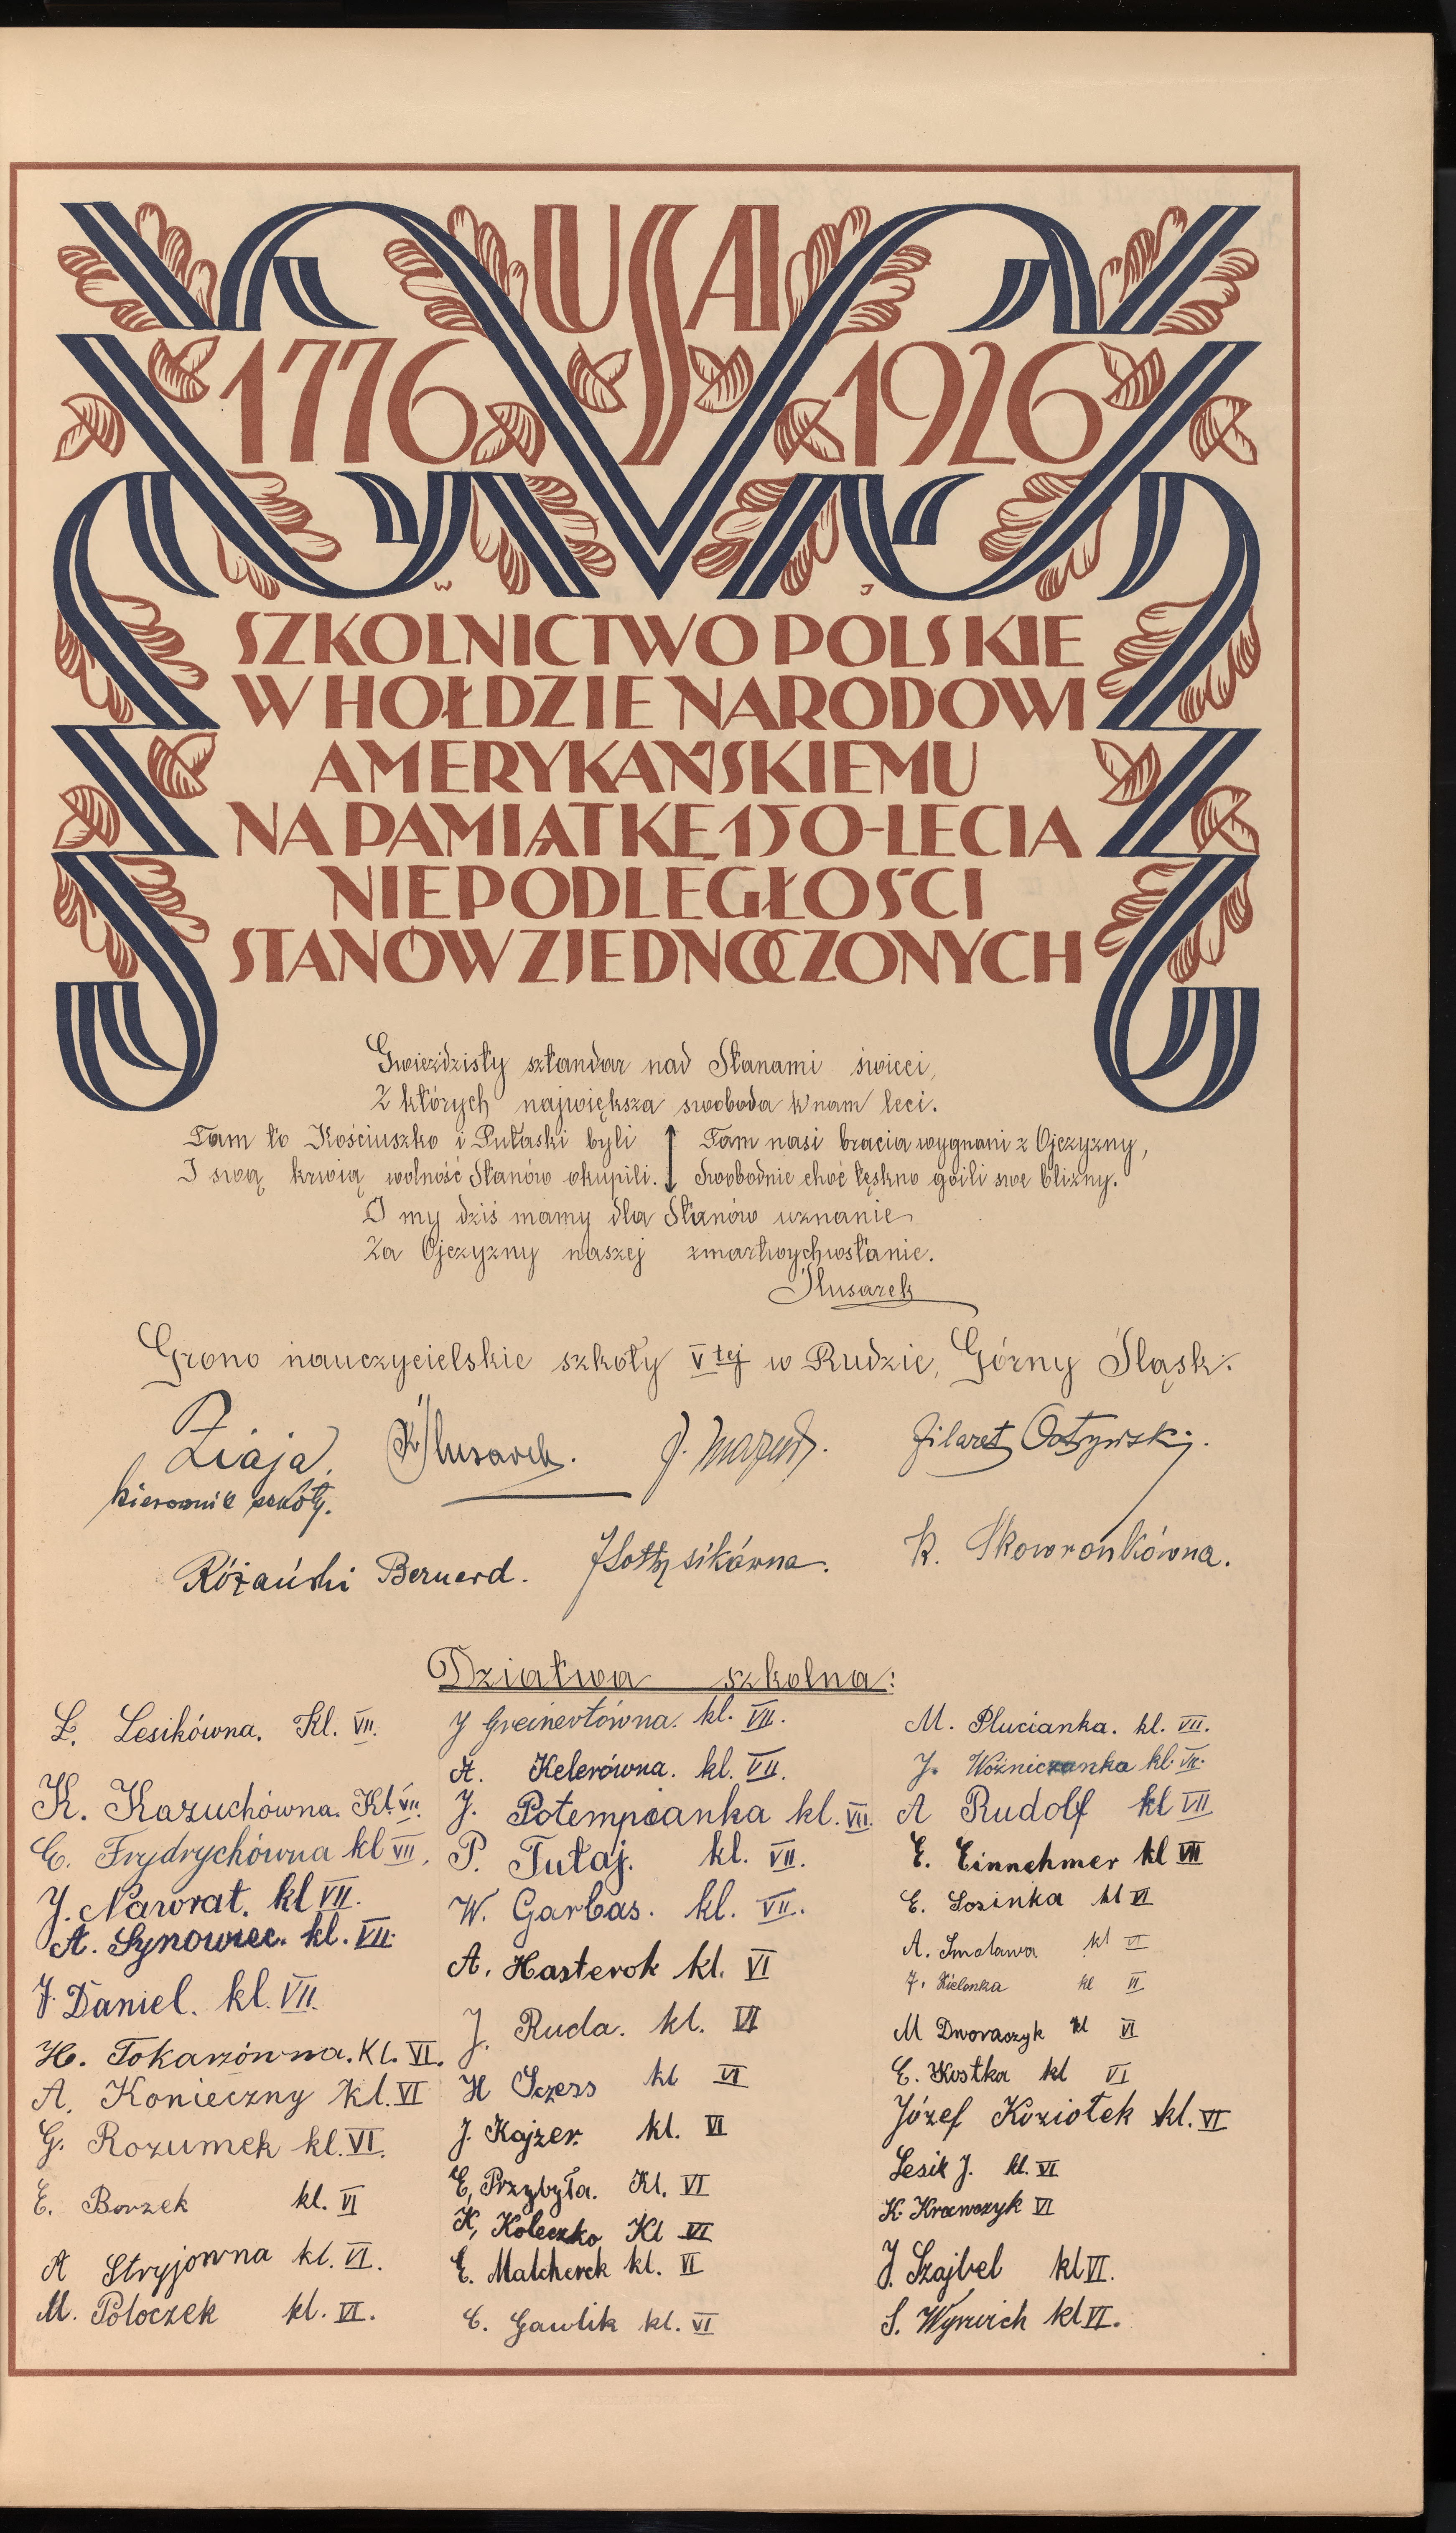 USA
1776 1926
W J
SZKOLNICTWO POLSKIE
W HOŁDZIE NARODOWI
AMERYKAŃSKIEMU
NA PAMIĄTKĘ 150-LECIA
NIEPODLEGŁOŚCI
STANÓW ZJEDNOCZONYCH
Gwieździsty sztandar nad Stanami świeci,
Z których największa swoboda k'nam leci.
Tam to Kościuszko i Pułaski byli
I swą krwią wolność Stanów okupili.
Tam nasi bracia wygnani z Ojczyzny,
Swobodnie choć tęskno goili swe blizny.
O my dziś mamy dla Stanów uznanie
Za Ojczyzny naszej zmartwychwstanie.
Ślusarek
Grono nauczycielskie szkoły V tej w Rudzie, Górny Śląsk.
Ziaja
kierownik szkoły.
K Ślusarek.
J. Mazur.
Filaret
Różański Bernard.
K. Skowronkówna.
Dziatwa szkolna:
Ł. Lesikówna. Kl. VII.
K. Kazuchówna. Kl. VII.
C. Frydrychówna kl VII.
J. Nawrat. kl VII.
A. Synowiec. kl. VII.
J. Daniel. kl. VII.
H. Tokarzówna. Kl. VI.
A. Konieczny kl. VI
G. Rozumek kl. VI.
E. Borzek kl. VI
A Stryjowna kl. VI.
M. Poloczek kl. VI.
J Greinertówna. kl. VII.
A. Kelerówna. kl. VII.
J. Potempianka kl. VII.
P. Tutaj. kl. VII.
W. Garbas. kl. VII.
A. Hasterok kl. VI
J. Ruda. kl. VI
H Sczess kl VI
J. Kajzer. kl. VI
E. Przybyła. Kl. VI
K, Koleczko Kl VI
E. Malcherek kl. VI
C. Gawlik kl. VI
M. Plucianka. kl. VII.
J. Woźniczanka kl. VII.
A Rudolf kl VII
E. Einnehmer kl VII
E. Losinka kl VI
A. Smolawa kl VI
F. Zielonka kl VI
M Dworaczyk kl VI
E. Kostka kl VI
Józef Koziołek kl. VI
Lesik J. kl. VI
K. Krawczyk VI
J. Szajbel kl VI.
S. Wyrwich kl VI.